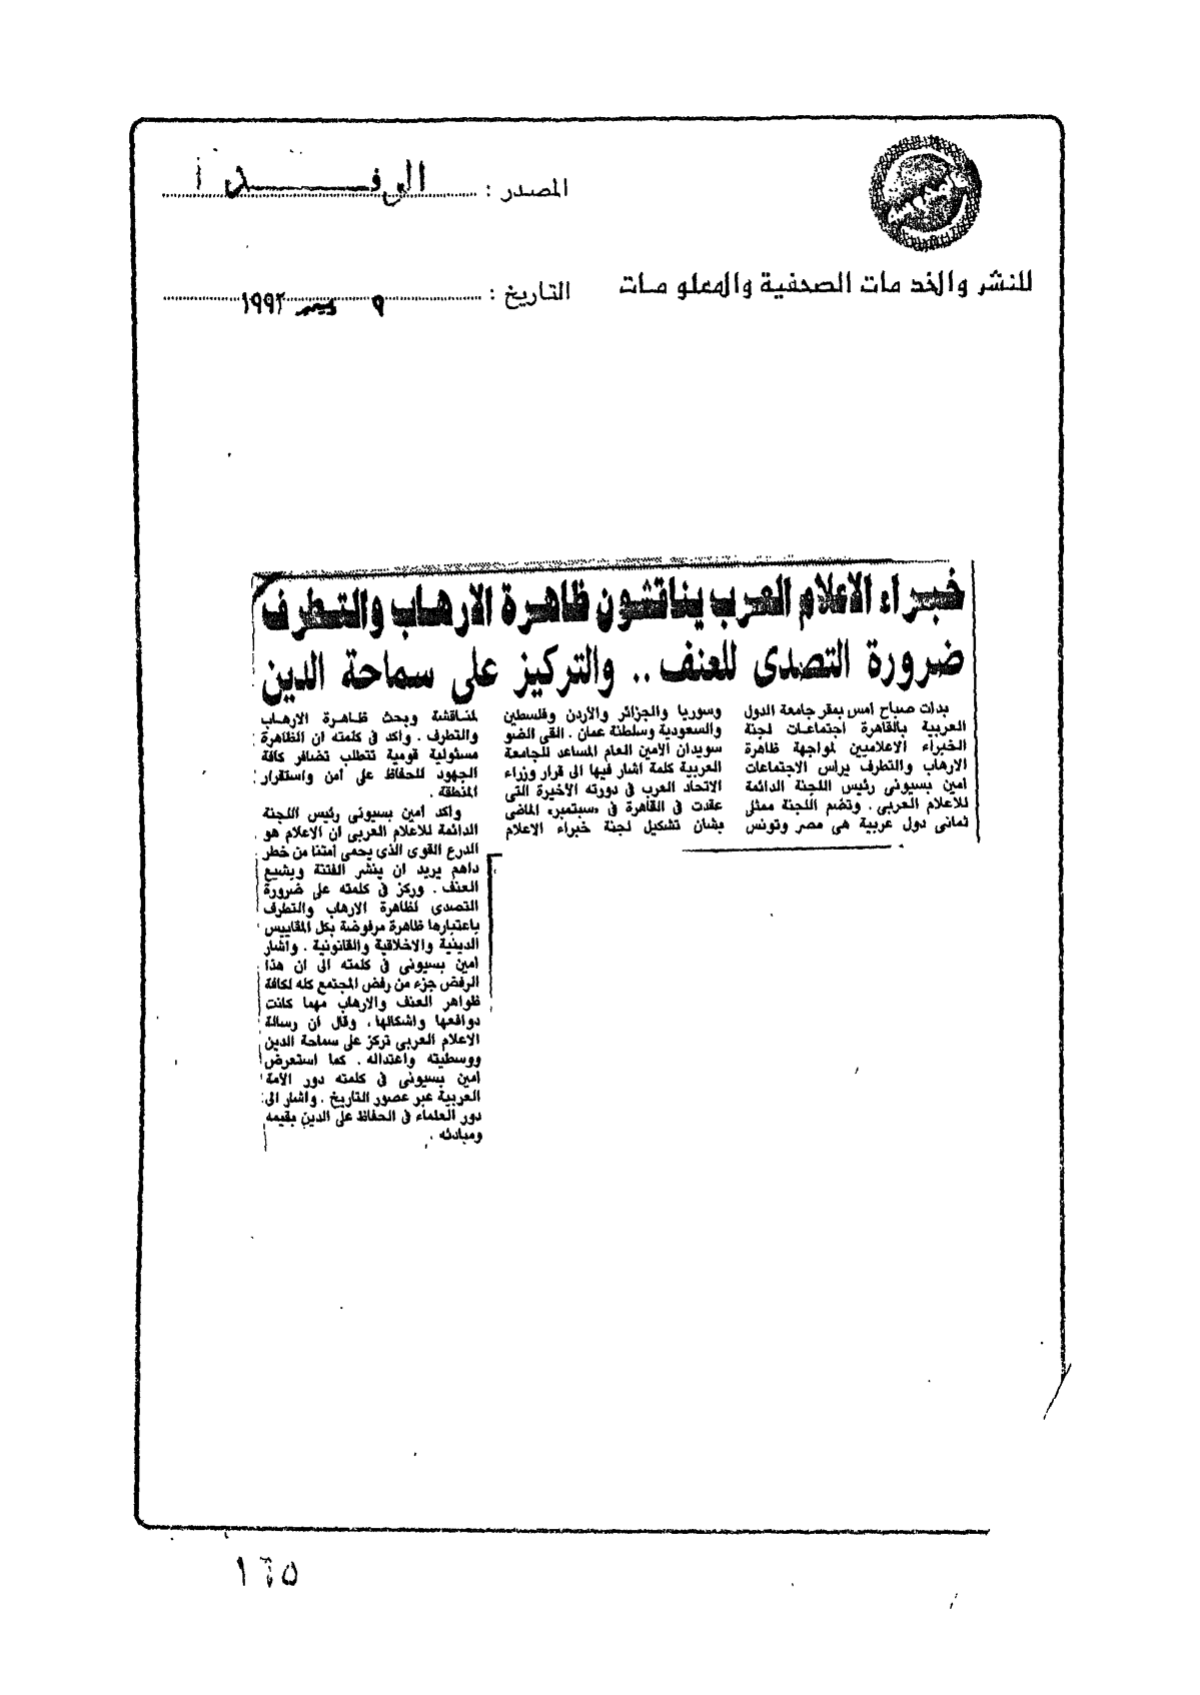 المصدر : الوفد
للنشر والخدمات الصحفية والمعلومات
التاريخ : ٩ ديسمبر ١٩٩٢
خبراء الاعلام العرب يناقشون ظاهرة الارهاب والتطرف
ضرورة التصدى للعنف .. والتركيز على سماحة الدين
بدات صباح امس بمقر جامعة الدول
العربية بالقاهرة اجتماعات لجنة
الخبراء الاعلاميين لمواجهة ظاهرة
الارهاب والتطرف يراس الاجتماعات
امين بسيونى رئيس اللجنة الدائمة
للاعلام العربى . وتضم اللجنة ممثلى
ثمانى دول عربية هى مصر وتونس
وسوريا والجزائر والأردن وفلسطين
والسعودية وسلطنة عمان . القى الضو
سويدان الامين العام المساعد للجامعة
العربية كلمة اشار فيها الى قرار وزراء
الاتحاد العرب فى دورته الأخيرة التى
عقدت فى القاهرة فى «سبتمبر» الماضى
بشان تشكيل لجنة خبراء الاعلام
لمناقشة وبحث ظاهرة الارهاب
والتطرف . واكد فى كلمته ان الظاهرة
مسئولية قومية تتطلب تضافر كافة
الجهود للحفاظ على أمن واستقرار
المنطقة .
واكد امين بسيونى رئيس اللجنة
الدائمة للاعلام العربى ان الاعلام هو
الدرع القوى الذى يحمى أمتنا من خطر
داهم يريد ان ينشر الفتنة ويشيع
العنف . وركز فى كلمته على ضرورة
التصدى لظاهرة الارهاب والتطرف
باعتبارها ظاهرة مرفوضة بكل المقاييس
الدينية والاخلاقية والقانونية . واشار
امين بسيونى فى كلمته الى ان هذا
الرفض جزء من رفض المجتمع كله لكافة
ظواهر العنف والارهاب مهما كانت
دوافعها واشكالها . وقال ان رسالة
الاعلام العربى تركز على سماحة الدين
ووسطيته واعتداله . كما استعرض
امين بسيونى فى كلمته دور الأمة
العربية عبر عصور التاريخ . واشار الى
دور العلماء فى الحفاظ على الدين بقيمه
ومبادئه .
١٦٥